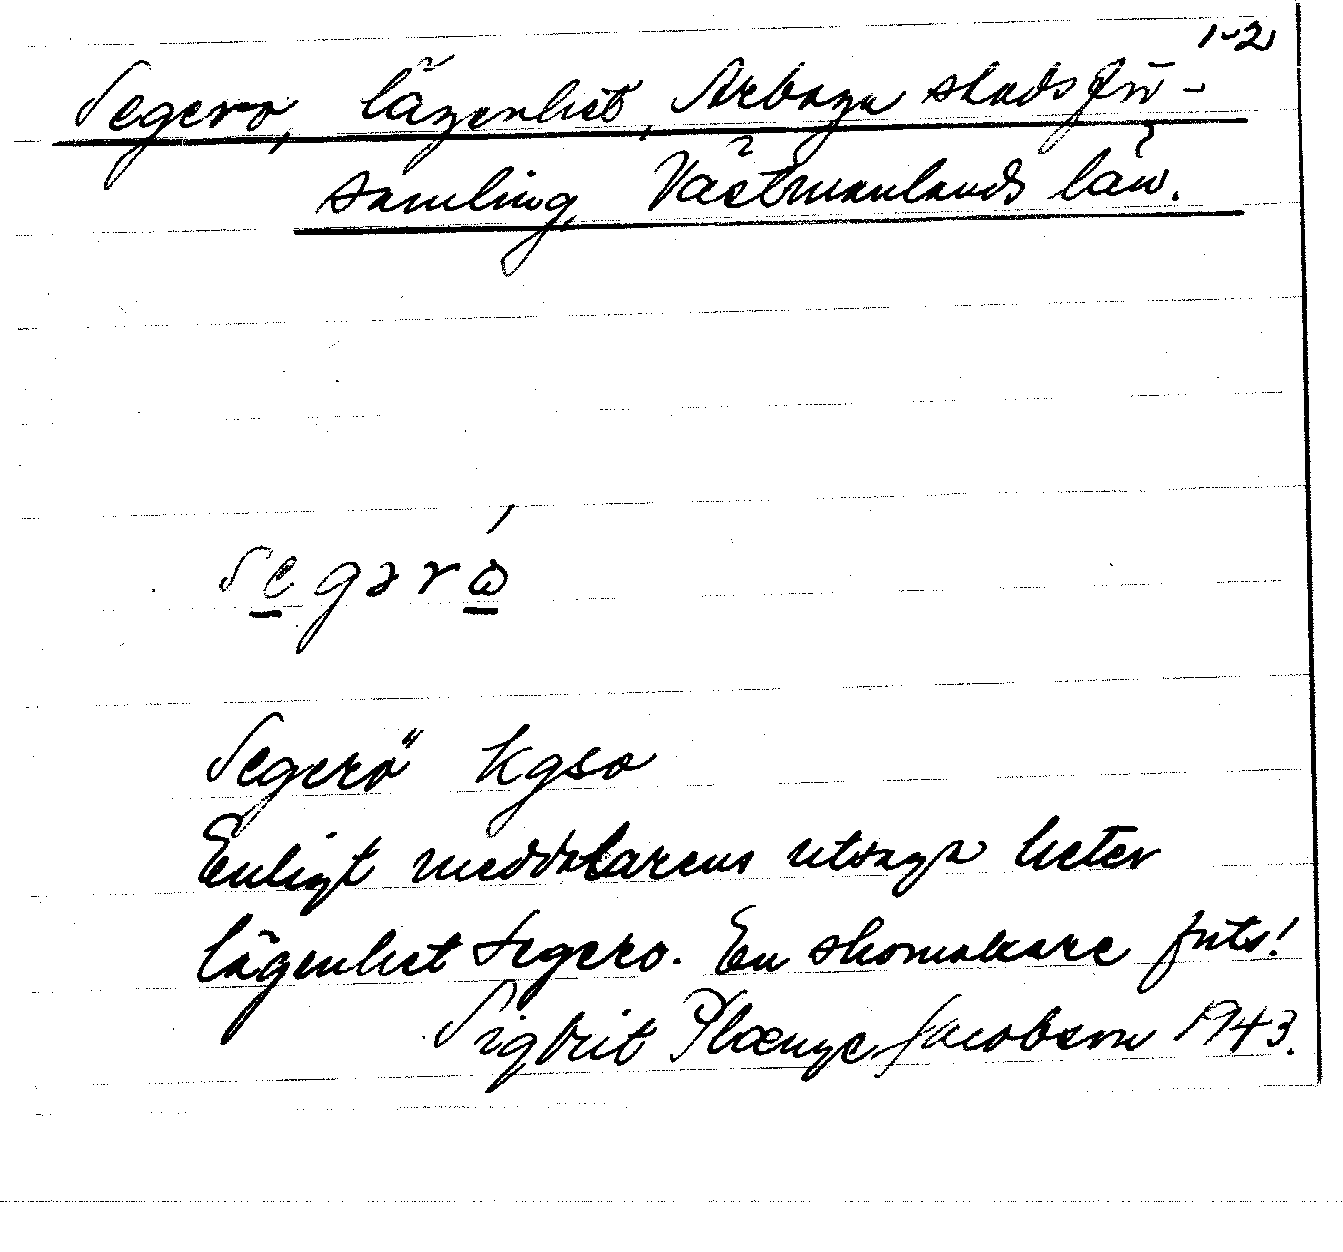 1-2
Segero, lägenhet, Arboga stadsför-
samling, Västmanlands län.
Segerö Kgso
Enligt meddelarens utsaga heter
lägenhet Segero. En skomakare fnts!
Sigbrit Plænge Jacobson 1943.